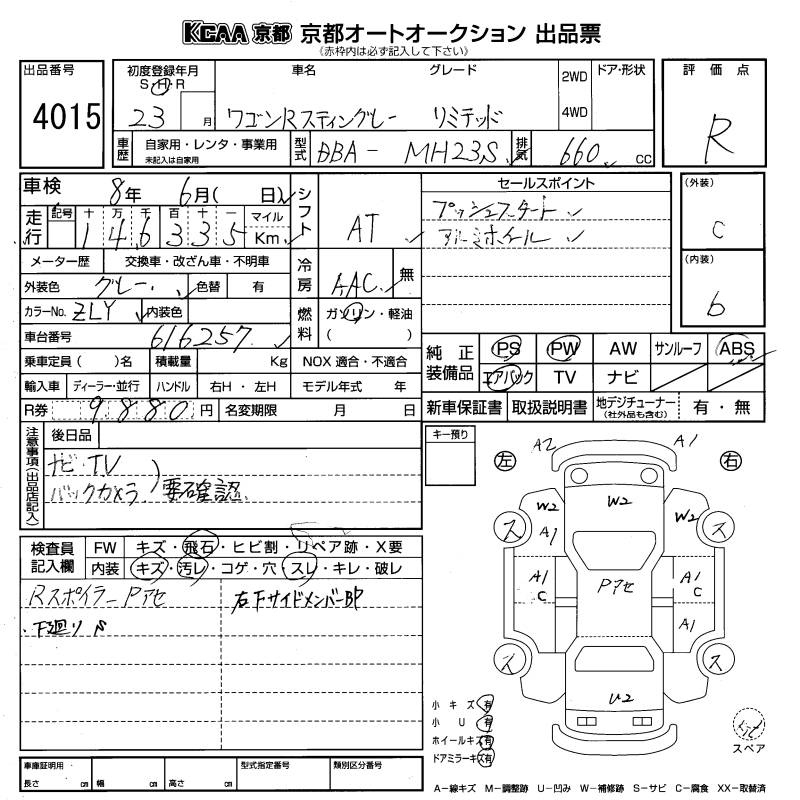 KCAA 京都 京都オートオークション 出品票
(赤枠内は必ず記入して下さい)
出品番号
4015
初度登録年月
S・H・R
23 月
車名 グレード
ワゴンRスティングレー リミテッド
2WD
4WD
ドア・形状
評価点
R
車歴
自家用・レンタ・事業用
未記入は自家用
型式
DBA-MH23S
排気
660 CC
車検 8年 6月( 日)
走行
記号 十 万 千 百 十 一
1 4 6 3 3 5
マイル
Km
シフト
AT
メーター歴 交換車・改ざん車・不明車
外装色 グレー 色替 有
冷房
AAC 無
カラーNo. ZLY 内装色
燃料
ガソリン・軽油
( )
車台番号 616257
乗車定員( )名 積載量 Kg NOX 適合・不適合
輸入車 ディーラー・並行 ハンドル 右H・左H モデル年式 年
R券 9880 円 名変期限 月 日
セールスポイント
プッシュスタート
アルミホイール
(外装)
C
(内装)
b
純正装備品
PS PW AW サンルーフ ABS
エアバック TV ナビ
新車保証書 取扱説明書 地デジチューナー (社外品も含む) 有・無
注意事項(出品店記入)
後日品
ナビ・TV
バックカメラ) 要確認
キー預り
左
右
A2 A1
W2 W2 W2
A1
A1 C
Pアセ
A1 C
A1
U2
ス ス
ス ス
検査員記入欄
FW キズ・飛石・ヒビ割・リペア跡・X要
内装 キズ・汚レ・コゲ・穴・スレ・キレ・破レ
Rスポイラー Pアセ
右下サイドメンバーBP
・下廻り S
小キズ 有
小U 有
ホイールキズ 有
ドアミラーキズ 有
スペア
車庫証明用
長さ cm 幅 cm 高さ cm
型式指定番号
類別区分番号
A−線キズ M−調整跡 U−凹み W−補修跡 S−サビ C−腐食 XX−取替済